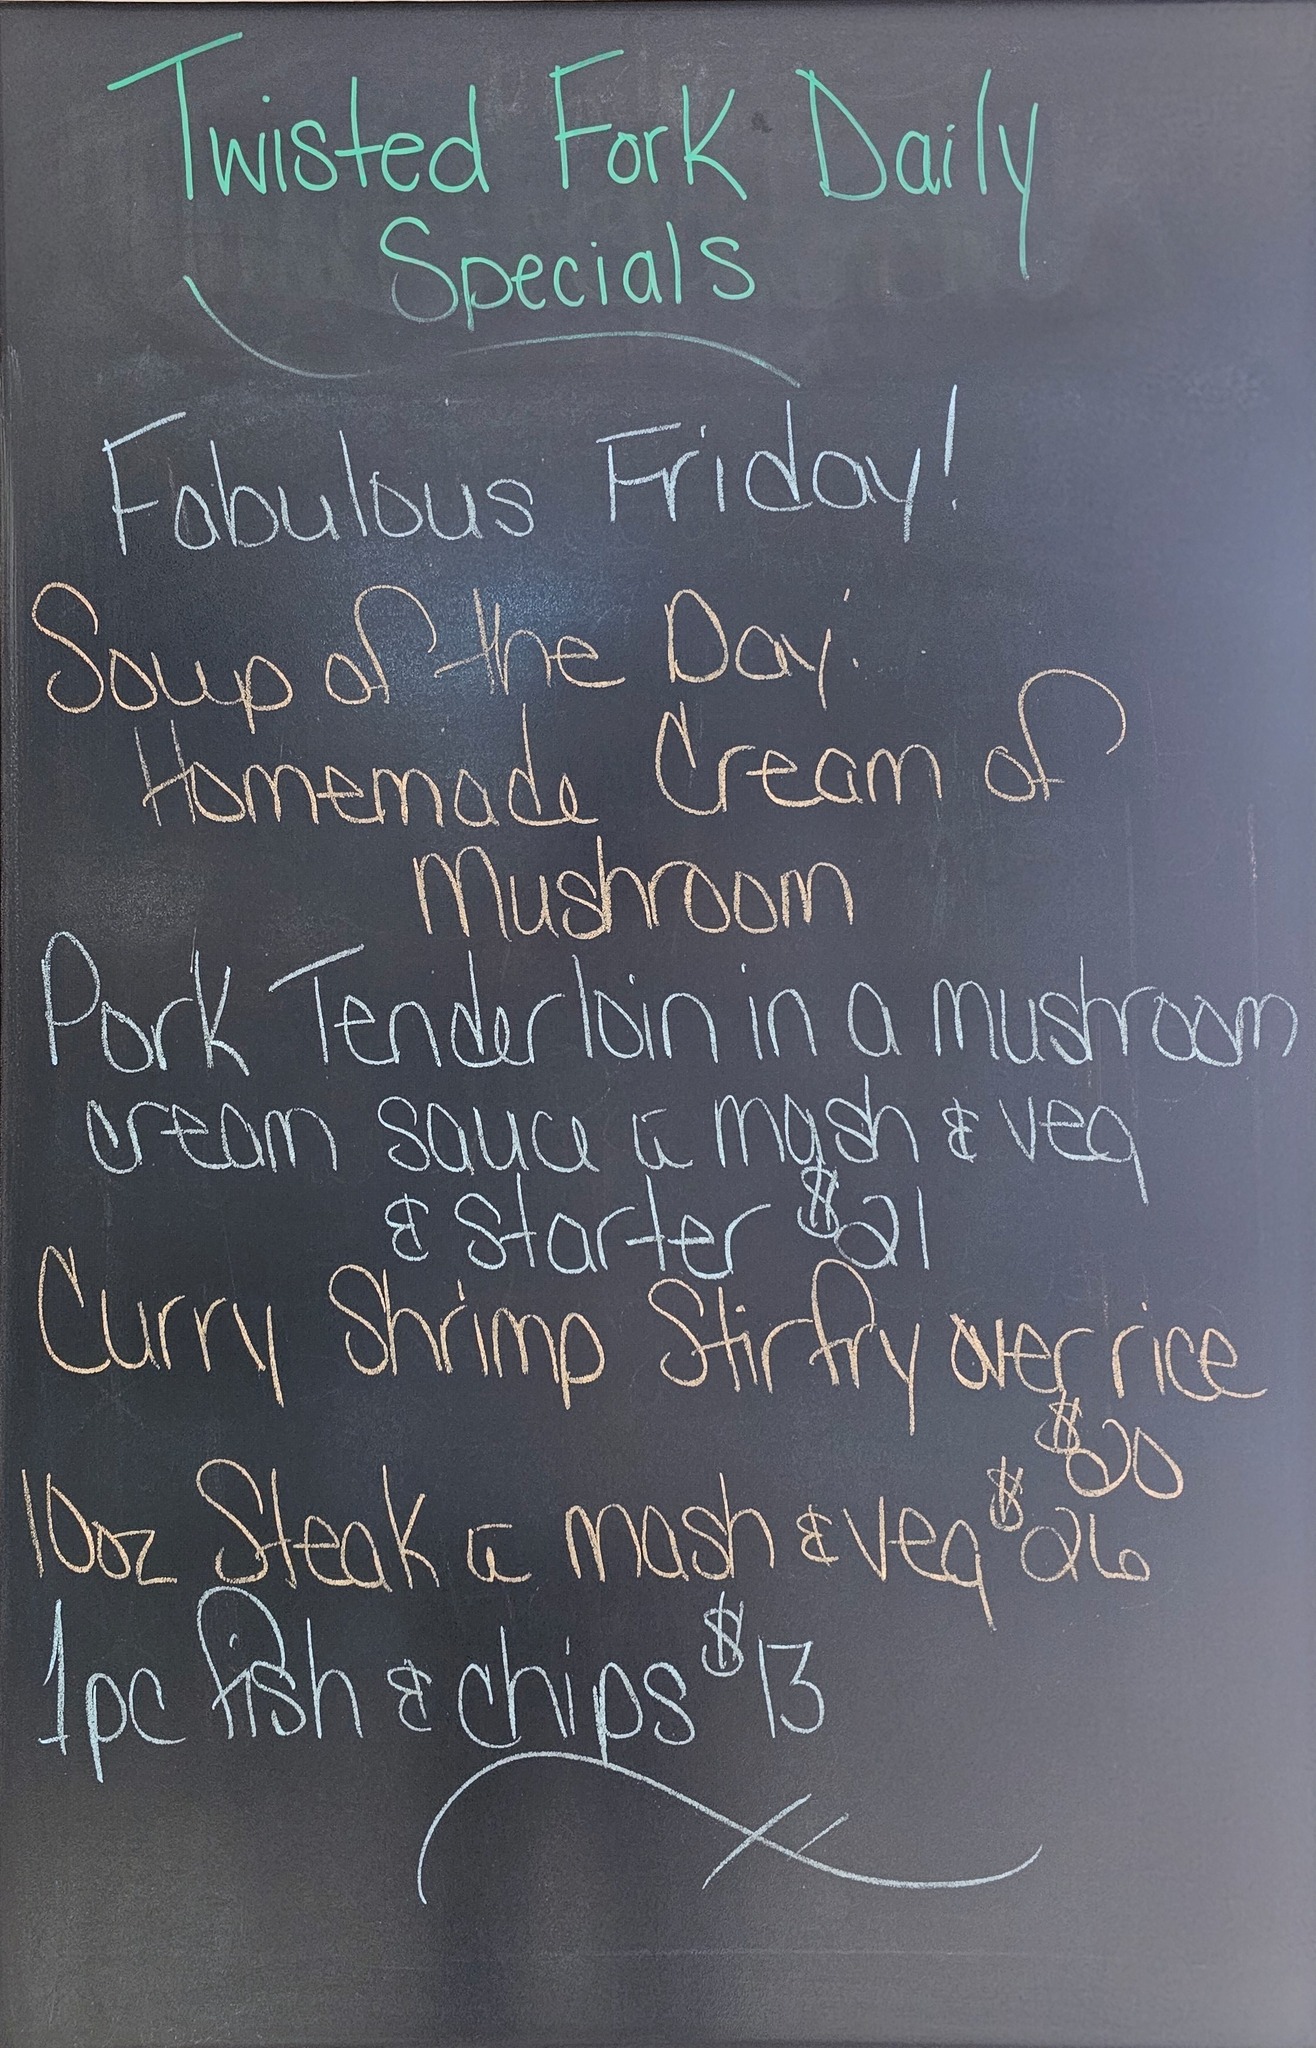 Twisted Fork Daily
Specials
Fabulous Friday!
Soup of the Day:
Homemade Cream of
Mushroom
Pork Tenderloin in a mushroom
cream sauce c̄ mash & veg
& starter $21
Curry Shrimp Stirfry over rice
$20
10oz Steak c̄ mash & veg $26
1pc fish & chips $13